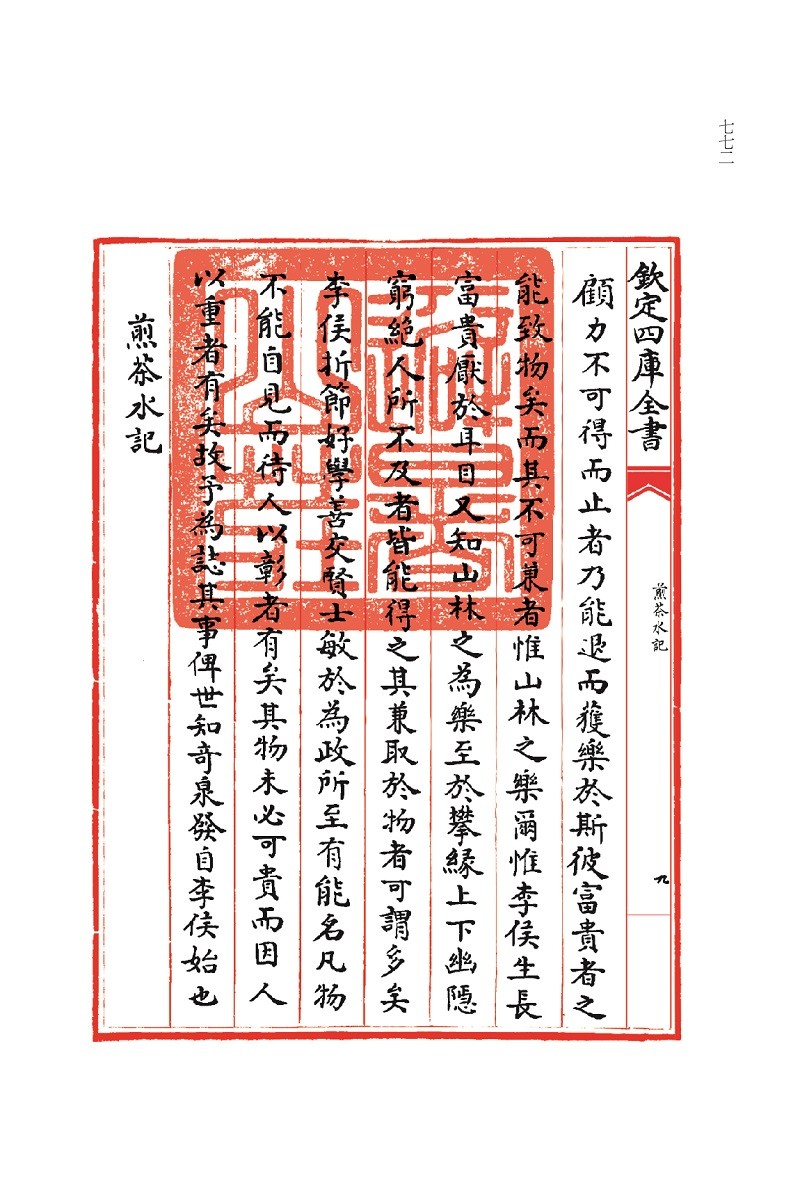 七七二
欽定四庫全書
煎茶水記
九
顧力不可得而止者乃能退而獲樂於斯彼富貴者之
能致物矣而其不可兼者惟山林之樂爾惟李侯生長
富貴厭於耳目又知山林之為樂至於攀緣上下幽隱
窮絶人所不及者皆能得之其兼取於物者可謂多矣
李侯折節好學善交賢士敏於為政所至有能名凡物
不能自見而待人以彰者有矣其物未必可貴而因人
以重者有矣故予為誌其事俾世知奇泉發自李侯始也
煎茶水記